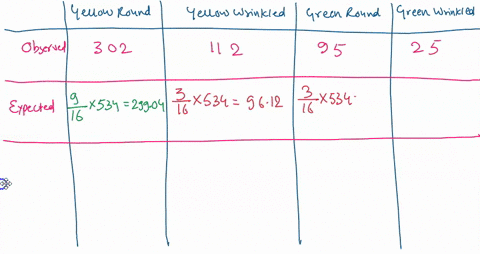 Yellow Round Yellow Wrinkled Green Round Green Wrinkled
Observed 302 112 95 25
Expected 9/16 ×534 = 299.04 3/16 ×534 = 96.12 3/16 ×534